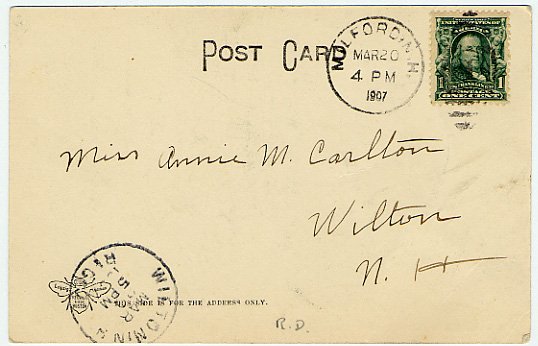 POST CARD
MILFORD, N.H.
MAR 20
4 PM
1907
1 POSTAGE 1
ONE CENT
Miss Annie M. Carlton
Wilton
N. H
WILTON N.H
MAR
5 PM
THIS SIDE IS FOR THE ADDRESS ONLY.
R.D.